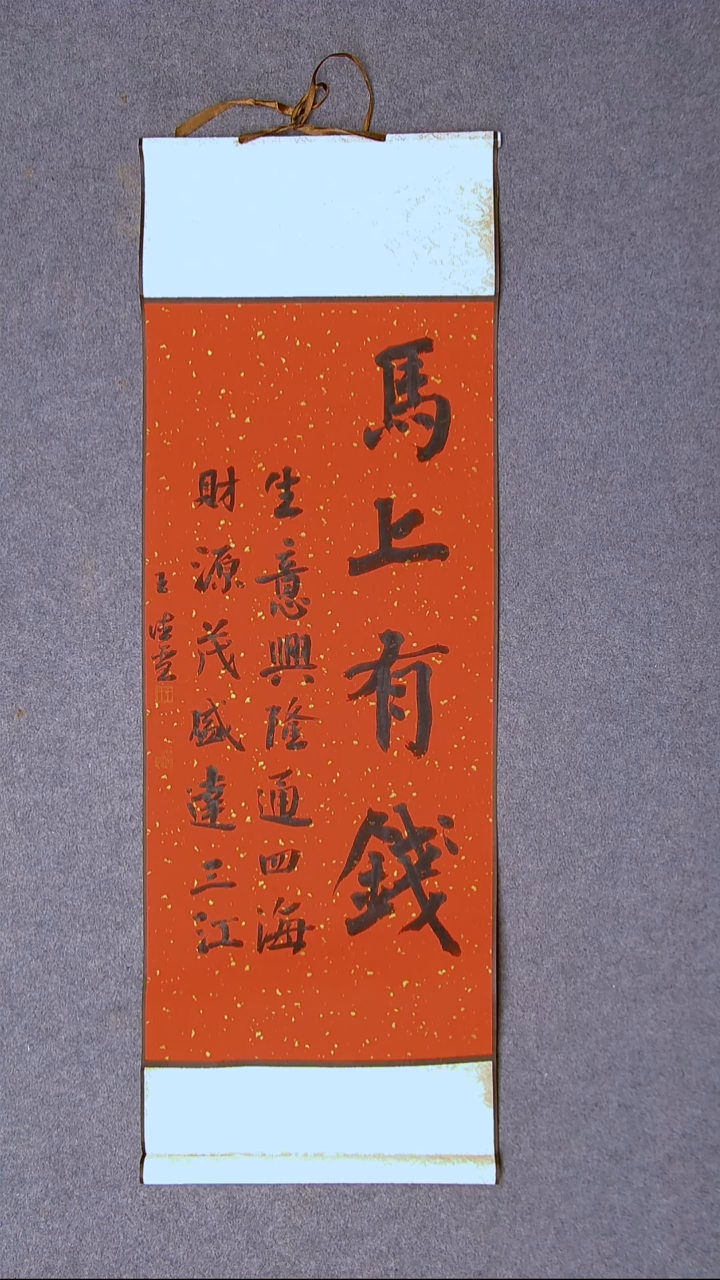 馬上有錢
生意興隆通四海
財源茂盛達三江
王